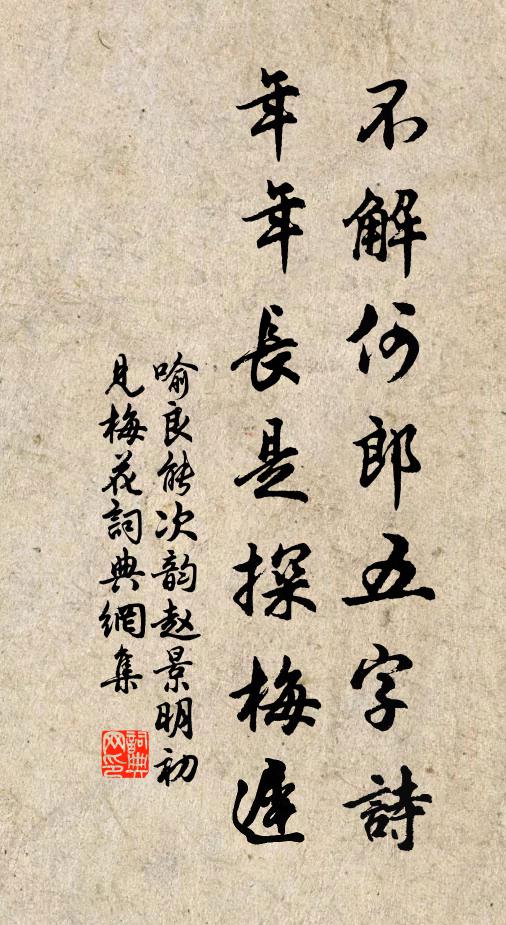 不解何郎五字詩
年年長是探梅遲
喻良能次韵赵景明初
見梅花詞典網集
詞典网印